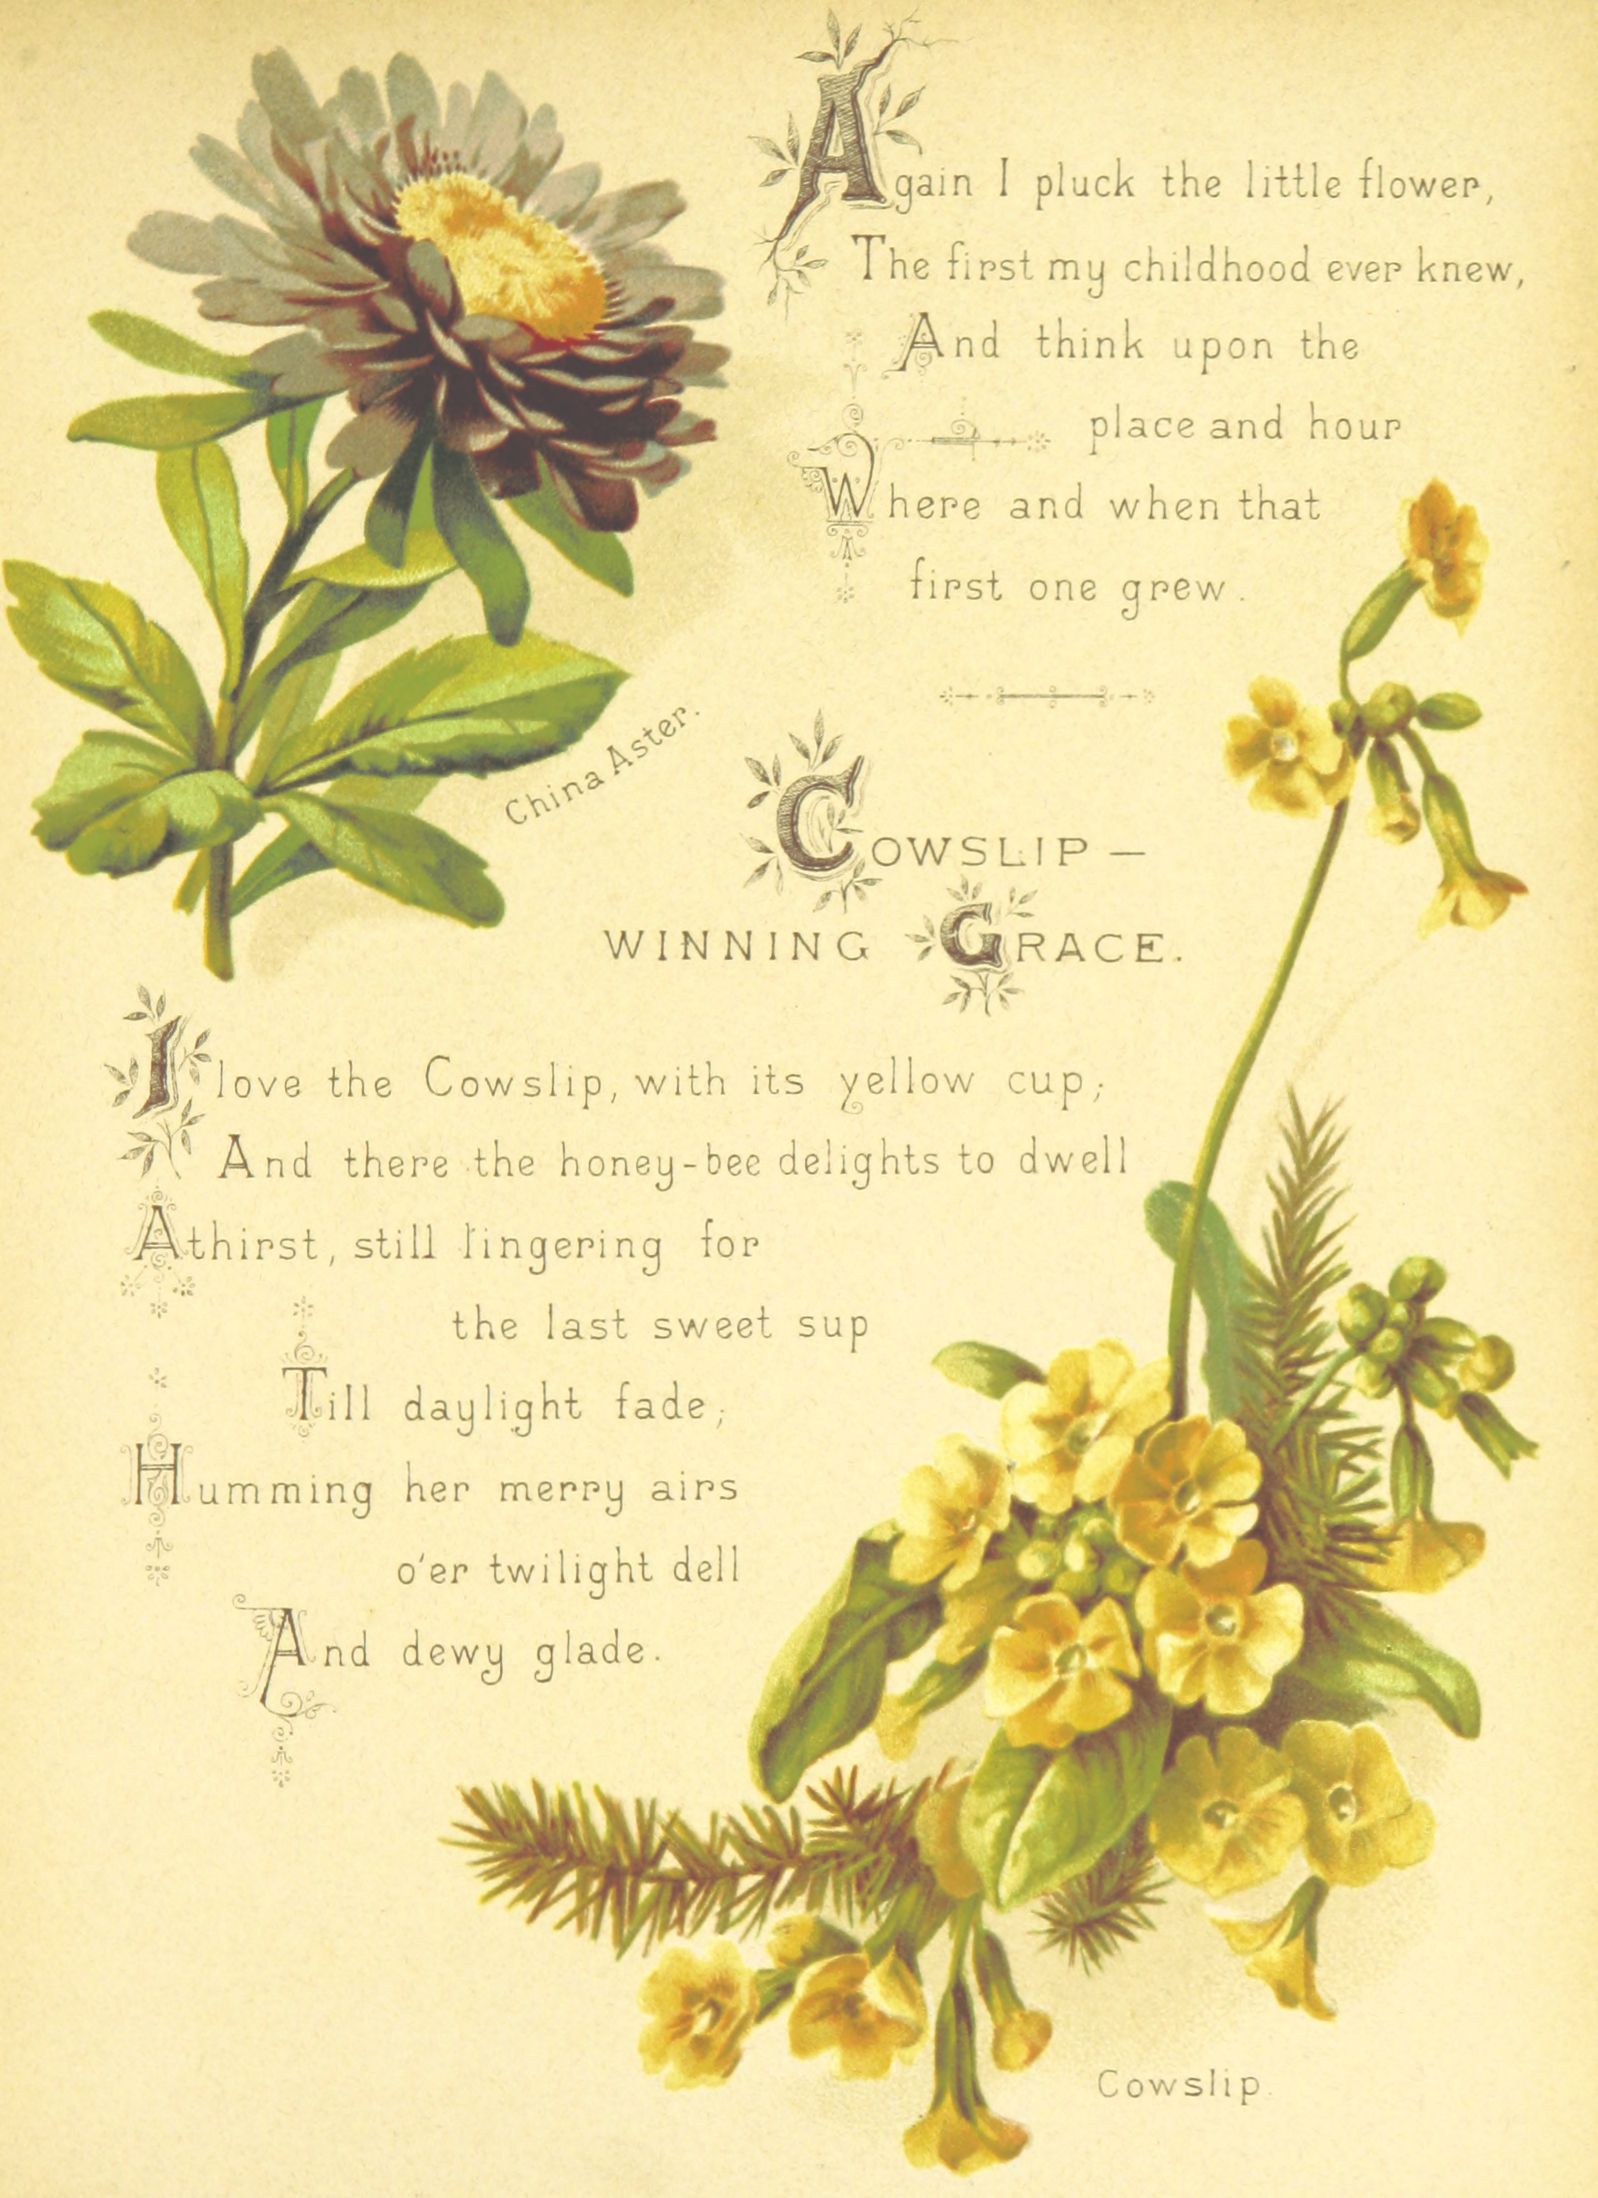 Again I pluck the little flower,
The first my childhood ever knew,
And think upon the
place and hour
Where and when that
first one grew.
China Aster.
COWSLIP —
WINNING GRACE.
I love the Cowslip, with its yellow cup;
And there the honey-bee delights to dwell
Athirst, still lingering for
the last sweet sup
Till daylight fade;
Humming her merry airs
o'er twilight dell
And dewy glade.
Cowslip.